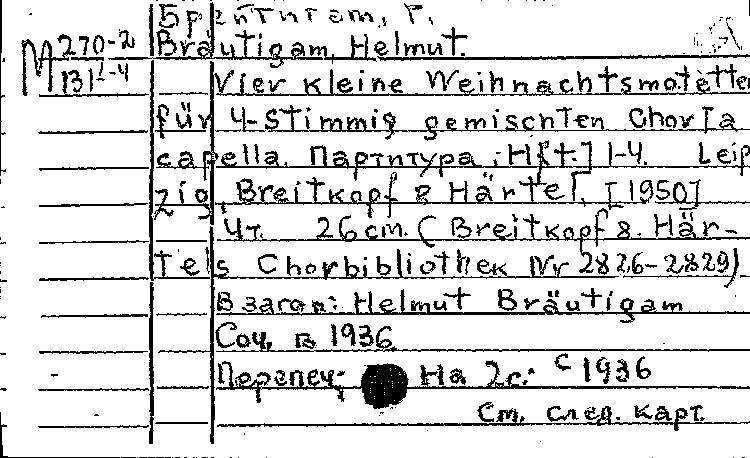 Брейтигам, Г.
M 270-2
131 2-4
Bräutigam, Helmut.
Vier kleine Weihnachtsmotetten
für 4-stimmig gemischten Chor [a
capella. Партитура : H[ft.] 1-4. Leip
zig, Breitkopf & Härtel, [1950]
4т. 26 cm. (Breitkopf & Här-
tels Chorbibliothek Nr 2826-2829)
В загол: Helmut Bräutigam
Соч. в 1936
Перепеч: На 2с.: с 1936
См. след. карт.